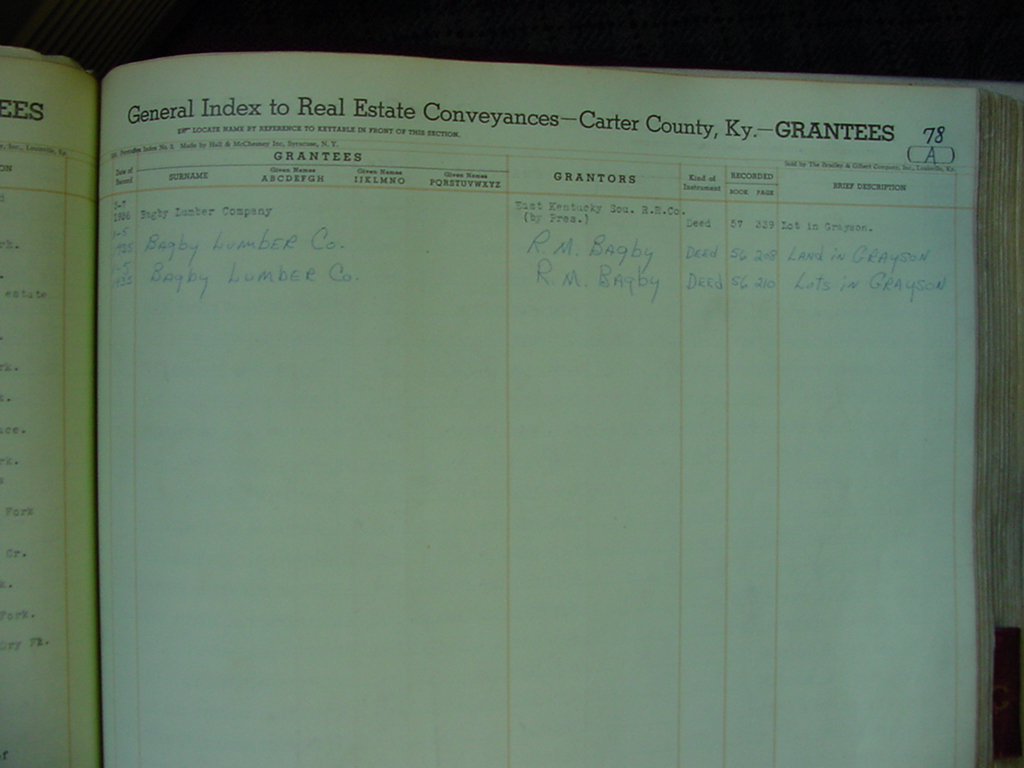 EES
General Index to Real Estate Conveyances—Carter County, Ky.—GRANTEES
78
A
LOCATE NAME BY REFERENCE TO KEYTABLE IN FRONT OF THIS SECTION.
Index No. 2. Made by Hall & McChesney Inc, Syracuse, N. Y.
Sold by The Bradley & Gilbert Company, Inc., Louisville, Ky.
Inc., Louisville, Ky.
ON
GRANTEES
Date of Record
SURNAME
Given Names ABCDEFGH
Given Names IJKLMNO
Given Names PQRSTUVWXYZ
GRANTORS
Kind of Instrument
RECORDED
BOOK PAGE
BRIEF DESCRIPTION
1926 Bagby Lumber Company East Kentucky Sou. R.R.Co. (by Pres.) Deed 57 339 Lot in Grayson.
1-5 Bagby Lumber Co. R.M. Bagby Deed 56 208 Land in Grayson
1-5 Bagby Lumber Co. R.M. Bagby Deed 56 210 Lots in Grayson
rk.
estate
rk.
rk.
Fork
Cr.
Fork.